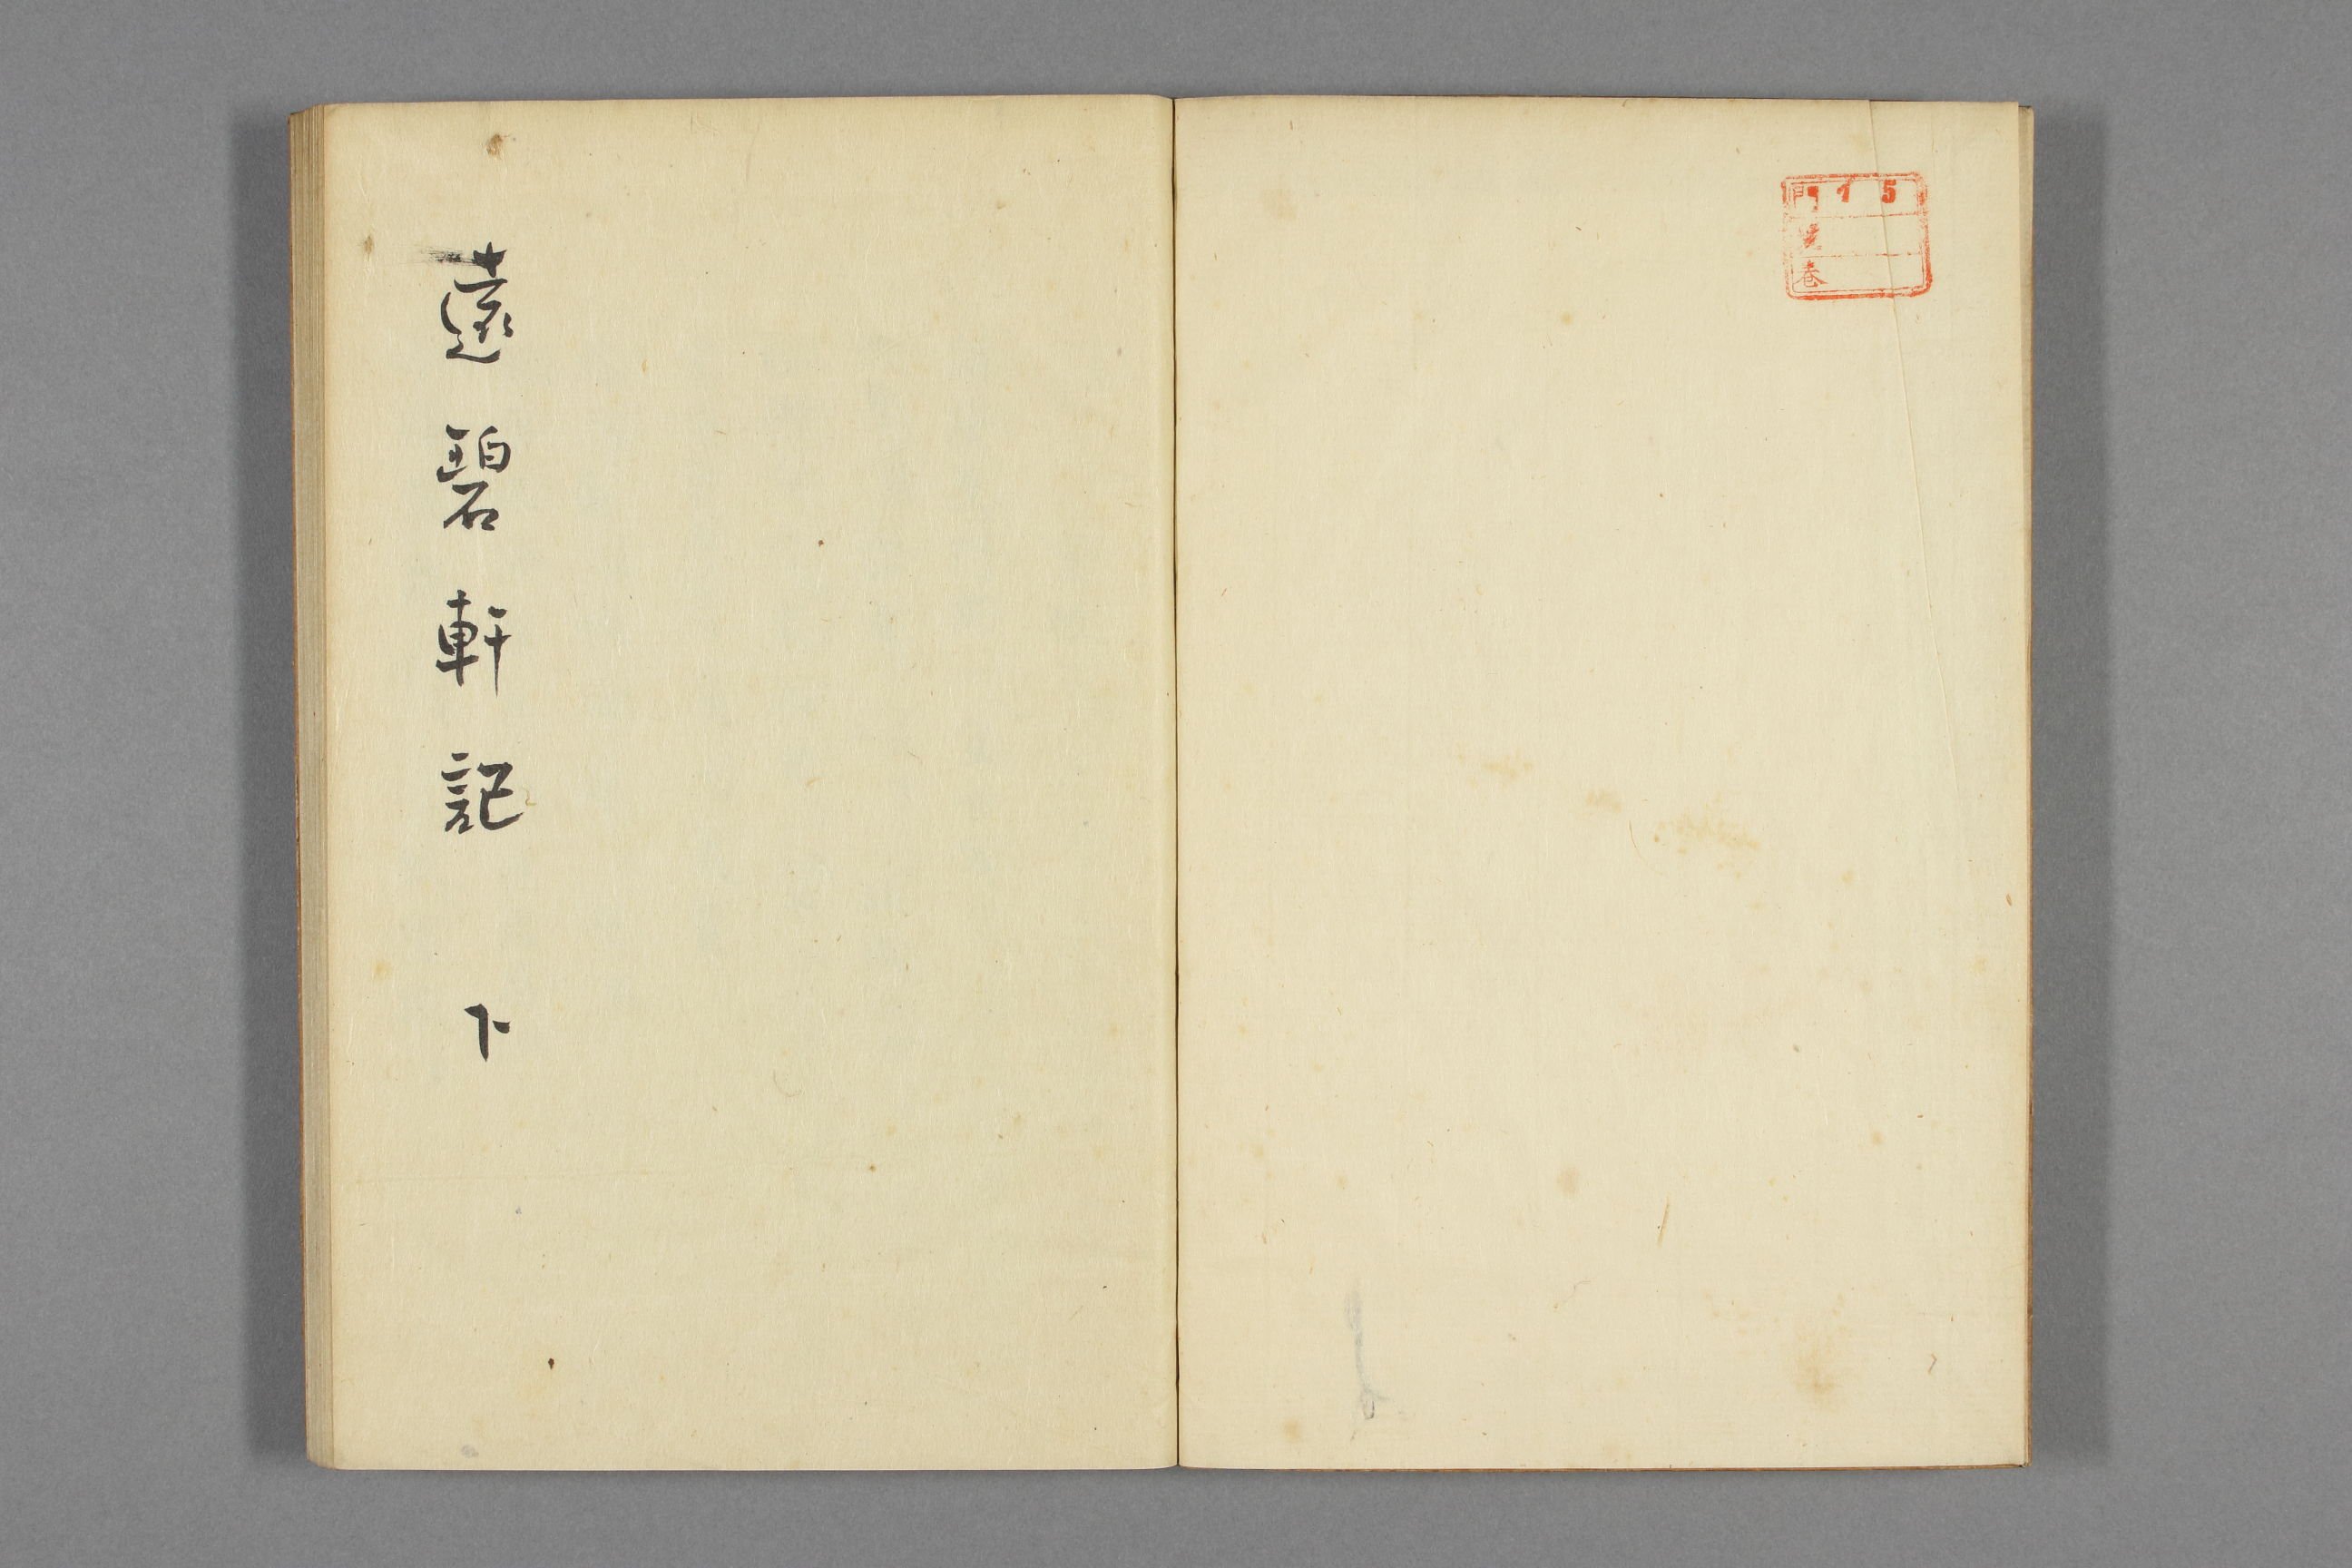 門 イ 5
號
巻
遠碧軒記 下